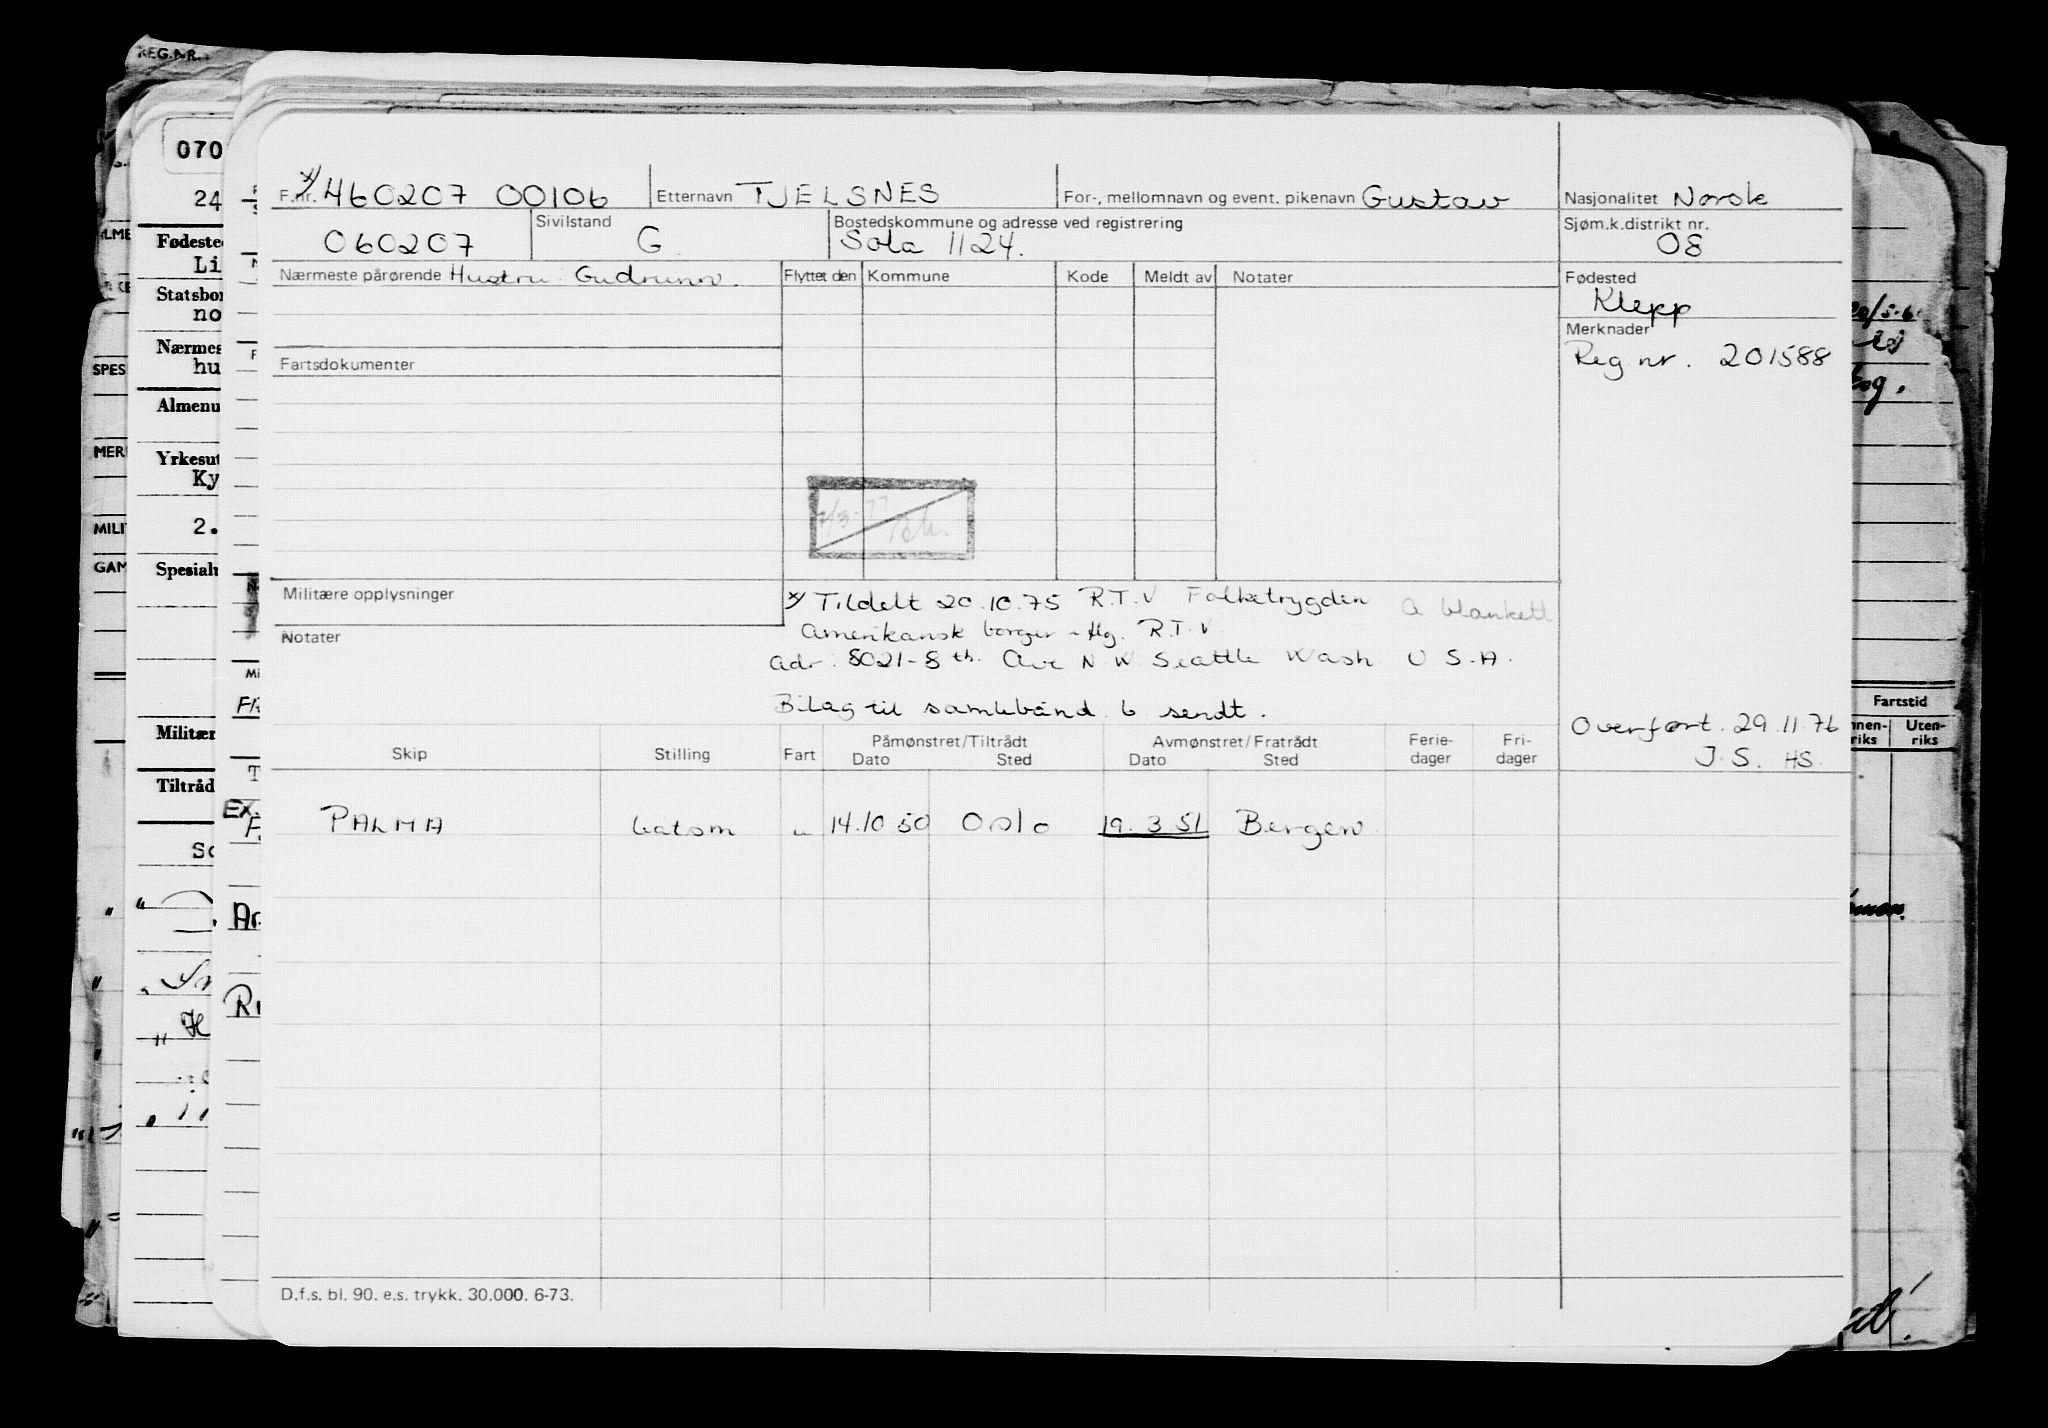 REG.NR.
070
F.nr. x/460207 00106 Etternavn TJELSNES For-, mellomnavn og event. pikenavn Gustav Nasjonalitet Norsk
24
060207 Sivilstand G Bostedskommune og adresse ved registrering Sola 1124. Sjøm.k.distrikt nr. 08
Nærmeste pårørende Hustru: Gudrunn. Flyttet den Kommune Kode Meldt av Notater Fødested
Klepp
Merknader
Reg.nr. 201588
Fartsdokumenter
Militære opplysninger
x/ Tildelt 20.10.75 R.T.V Folketrygden A blankett
Notater
Amerikansk borger i flg. R.T.V.
Adr: 8021-8th. Ave N W Seattle Wash U S.A.
Bilag til samlebånd 6 sendt.
Overført. 29.11.76
J.S. HS.
Skip Stilling Fart Påmønstret/Tiltrådt Dato Sted Avmønstret/Fratrådt Dato Sted Ferie-dager Fri-dager
PALMA batsm u 14.10 50 Oslo 19. 3 51 Bergen
D.f.s. bl. 90. e.s. trykk. 30.000. 6-73.
Li
no
hu
Ky
2.
SPES
MILI
GAM
Fartstid
Uten-
riks